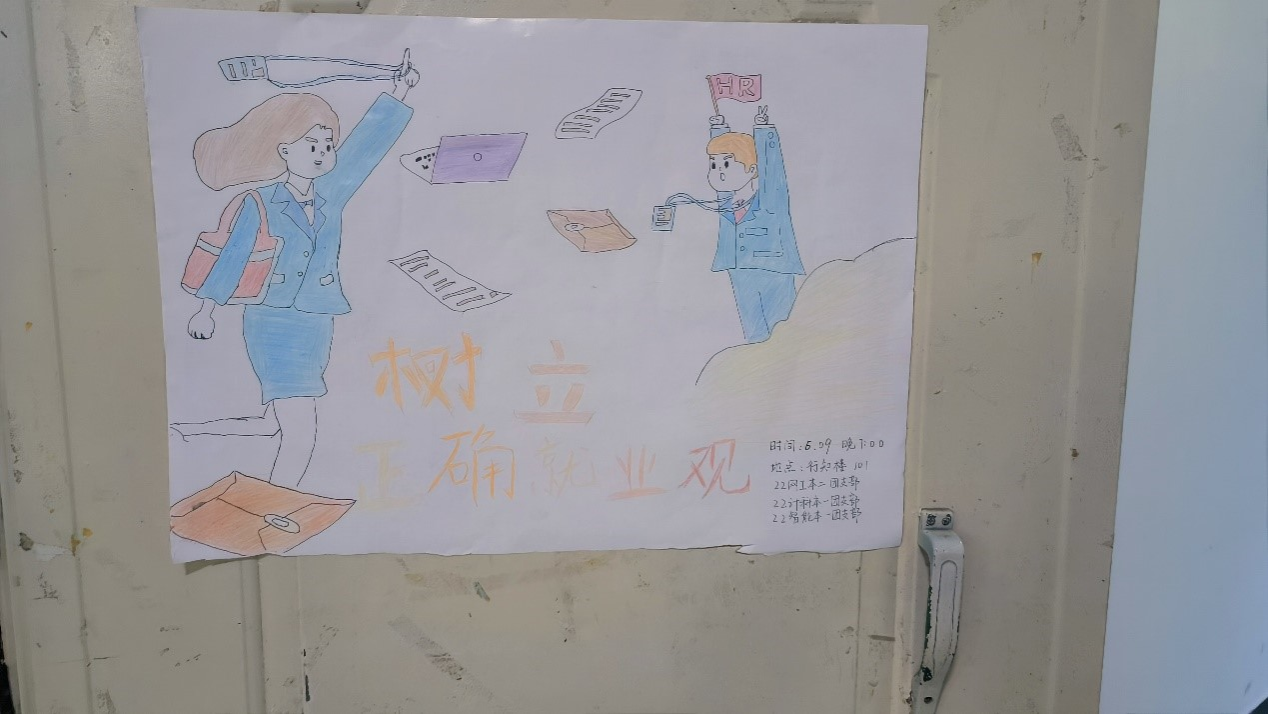 HR
树立
正确就业观
时间:5.09 晚7:00
地点:行知楼 101
22网工本二团支部
22计科本一团支部
22智能本一团支部